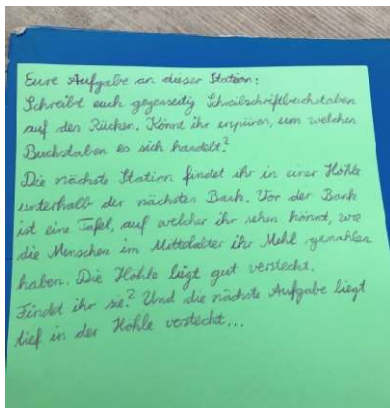 Eure Aufgabe an dieser Station:
Schreibt euch gegenseitig Schreibschriftbuchstaben
auf den Rücken. Könnt ihr erspüren, um welchen
Buchstaben es sich handelt?
Die nächste Station findet ihr in einer Höhle
unterhalb der nächsten Bank. Vor der Bank
ist eine Tafel, auf welcher ihr sehen könnt, wo
die Menschen im Mittelalter ihr Mehl gemahlen
haben. Die Höhle liegt gut versteckt.
Findet ihr sie? Und die nächste Aufgabe liegt
tief in der Höhle versteckt...